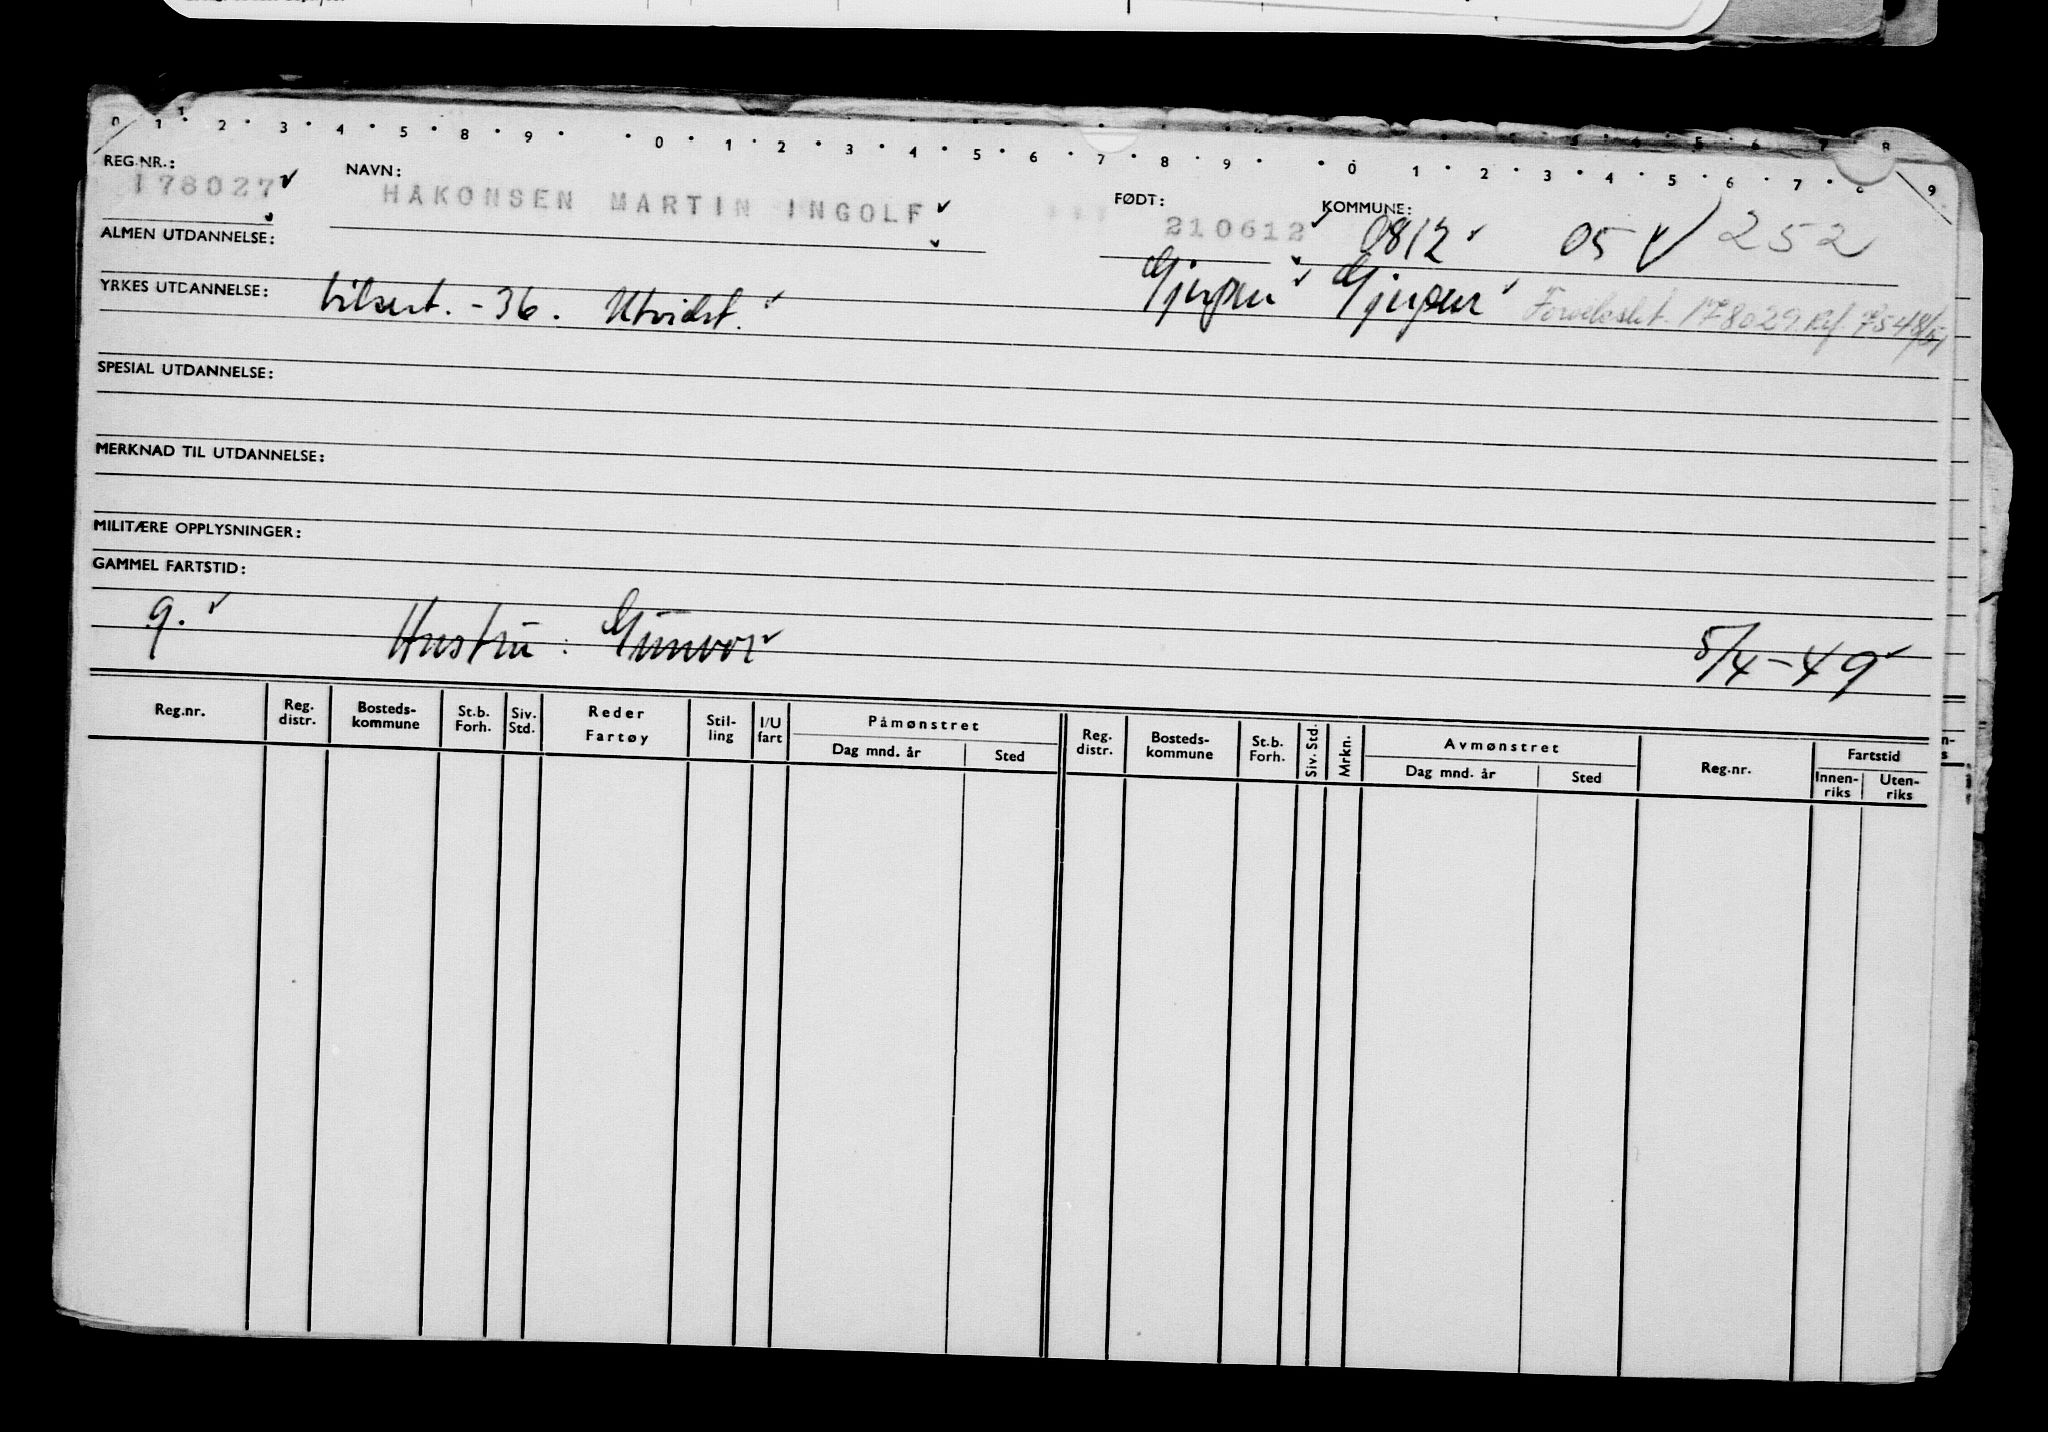 0 1 2 3 4 5 8 9 0 1 2 3 4 5 6 7 8 9 0 1 2 3 4 5 6 7 8 9
REG.NR.: NAVN: FØDT: KOMMUNE:
178027 HAKONSEN MARTIN INGOLF 210612 0812 05 252
ALMEN UTDANNELSE: Gjerpen Gjerpen
YRKES UTDANNELSE: -36. Utvidet. 178029 Ref.
SPESIAL UTDANNELSE:
MERKNAD TIL UTDANNELSE:
MILITÆRE OPPLYSNINGER:
GAMMEL FARTSTID:
g. Hustru: Gunvor 5/4-49
Reg.nr. Reg. distr. Bosteds-kommune St.b. Forh. Siv. Std. Reder Fartøy Stil-ling I/U fart Påmønstret Reg. distr. Bosteds-kommune St.b. Forh. Siv. Std. Mrkn. Avmønstret Reg.nr. Fartstid
Dag mnd. år Sted Dag mnd. år Sted Innen-riks Uten-riks